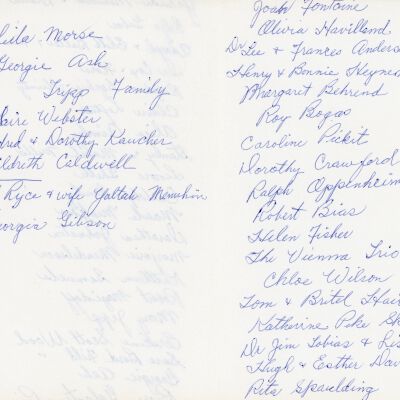 eila Morse
Georgie Ash
Tripp Family
laire Webster
dred & Dorothy Kaucher
ldreth Caldwell
Ryce & wife Yaltah Menuhin
eorgia Gibson
Joan Fontaine
Olivia Havilland
Dr Lee & Frances Anders
Henry & Bonnie Heynem
Margaret Behrend
Roy Bogas
Caroline Pickit
Dorothy Crawford
Ralph Oppenheim
Robert Bias
Helen Fisher
The Vienna Trio
Chloe Wilson
Tom & Britel Hair
Katherine Pike Sk
Dr Jim Tobias & Lis
Hugh & Esther Dav
Rita Spaulding